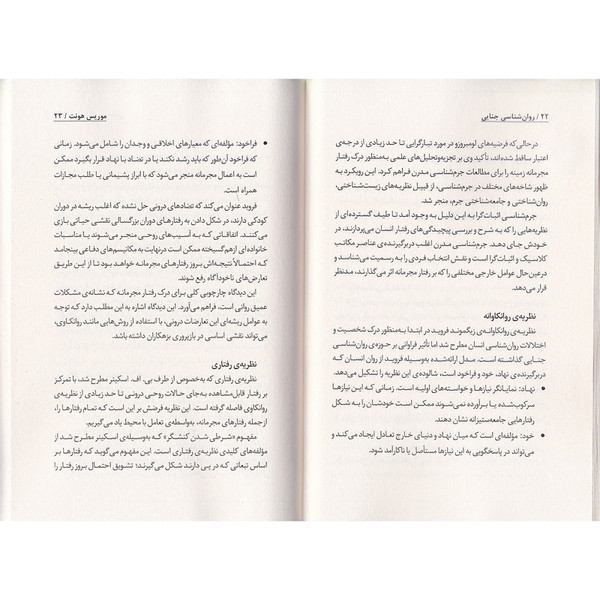 ۲۲ / روان‌شناسی جنایی
درحالی‌که فرضیه‌های لومبروزو در مورد تبارگرایی تا حد زیادی از درجه‌ی
اعتبار ساقط شده‌اند، تأکید وی بر تجزیه‌وتحلیل‌های علمی به‌منظور درک رفتار
مجرمانه زمینه را برای مطالعات جرم‌شناسی مدرن فراهم کرد. این رویکرد به
ظهور شاخه‌های مختلف در جرم‌شناسی، از قبیل نظریه‌های زیست‌شناختی،
روان‌شناختی و جامعه‌شناختی جرم، منجر شد.
جرم‌شناسی اثبات‌گرا به این دلیل به وجود آمد تا طیف گسترده‌ای از
نظریه‌هایی را که به شرح و بررسی پیچیدگی‌های رفتار انسان می‌پردازند، در
خودش جای دهد. جرم‌شناسی مدرن اغلب دربرگیرنده‌ی عناصر مکاتب
کلاسیک و اثبات‌گرا است و نقش انتخاب فردی را به رسمیت می‌شناسد و
درعین‌حال عوامل خارجی مختلفی را که بر رفتار مجرمانه اثر می‌گذارند، مدنظر
قرار می‌دهد.
نظریه‌ی روانکاوانه
نظریه‌ی روانکاوانه‌ی زیگموند فروید در ابتدا به‌منظور درک شخصیت و
اختلالات روان‌شناسی انسان مطرح شد اما تأثیر فراوانی بر حوزه‌ی روان‌شناسی
جنایی گذاشته است. مدل ارائه‌شده به‌وسیله‌ی فروید از روان انسان که
دربرگیرنده‌ی نهاد، خود و فراخود است، شالوده‌ی این نظریه را تشکیل می‌دهد.
• نهاد: نمایانگر نیازها و خواسته‌های اولیه است. زمانی که این نیازها
سرکوب‌شده یا برآورده نمی‌شوند ممکن است خودشان را به شکل
رفتارهایی جامعه‌ستیزانه نشان دهند.
• خود: مؤلفه‌ای است که میان نهاد و دنیای خارج تعادل ایجاد می‌کند و
می‌تواند در پاسخگویی به این نیازها مستأصل یا ناکارآمد شود.
موریس هونت / ۲۳
• فراخود: مؤلفه‌ای که معیارهای اخلاقی و وجدان را شامل می‌شود. زمانی
که فراخود آن‌طور که باید رشد نکند یا در تضاد با نهاد قرار بگیرد ممکن
است به اعمال مجرمانه منجر می‌شود که با ابراز پشیمانی یا طلب مجازات
همراه است.
فروید عنوان می‌کند که تضادهای درونی حل نشده که اغلب ریشه در دوران
کودکی دارند، در شکل دادن به رفتارهای دوران بزرگسالی نقشی حیاتی بازی
می‌کنند. اتفاقاتی که به آسیب‌های روحی منجر می‌شوند یا مناسبات
خانواده‌ای ازهم‌گسیخته ممکن است درنهایت به مکانیسم‌های دفاعی بینجامد
که احتمالاً نتیجه‌اش بروز رفتارهای مجرمانه خواهد بود تا از این طریق
تعارض‌های ناخودآگاه رفع شوند.
این دیدگاه چارچوبی کلی برای درک رفتار مجرمانه که نشانه‌ی مشکلات
عمیق روانی است، فراهم می‌آورد. این دیدگاه اشاره به این مطلب دارد که توجه
به عوامل ریشه‌ای این تعارضات درونی، با استفاده از روش‌هایی مانند روانکاوی،
می‌تواند نقشی اساسی در بازپروری بزهکاران داشته باشد.
نظریه‌ی رفتاری
نظریه‌ی رفتاری که به‌خصوص از طرف بی. اف. اسکینر مطرح شد، با تمرکز
بر رفتار قابل‌مشاهده به‌جای حالات روحی درونی تا حد زیادی از نظریه‌ی
روانکاوی فاصله گرفته است. این نظریه فرضش بر این است که تمام رفتارها را،
ازجمله رفتارهای مجرمانه، به‌واسطه‌ی تعامل با محیط یاد می‌گیریم.
مفهوم «شرطی شدن کنشگر» که به‌وسیله‌ی اسکینر مطرح شد از
مؤلفه‌های کلیدی نظریه‌ی رفتاری است. این مفهوم می‌گوید که رفتارها بر
اساس تبعاتی که در پی دارند شکل می‌گیرند؛ تشویق احتمال بروز رفتار را